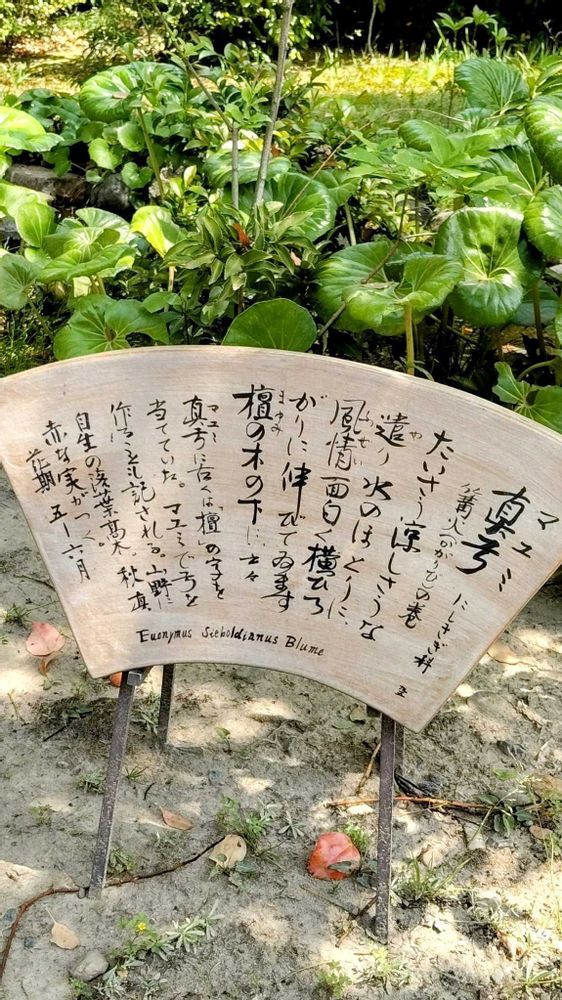 マユミ
真弓
にしきぎ科
篝火(かがりび)の巻
たいさう涼しさうな
遣り水のほとりに、
や
風情面白く横ひろ
ふぜい
がりに伸びてゐます
檀の木の下に、云々
まゆみ
真弓に古くは「檀」の字を
マユミ
当てていた。マユミで弓を
作ることも記される。山野に
自生の落葉高木。秋、真
赤な実がつく。
花期 五-六月
Euonymus Sieboldianus Blume